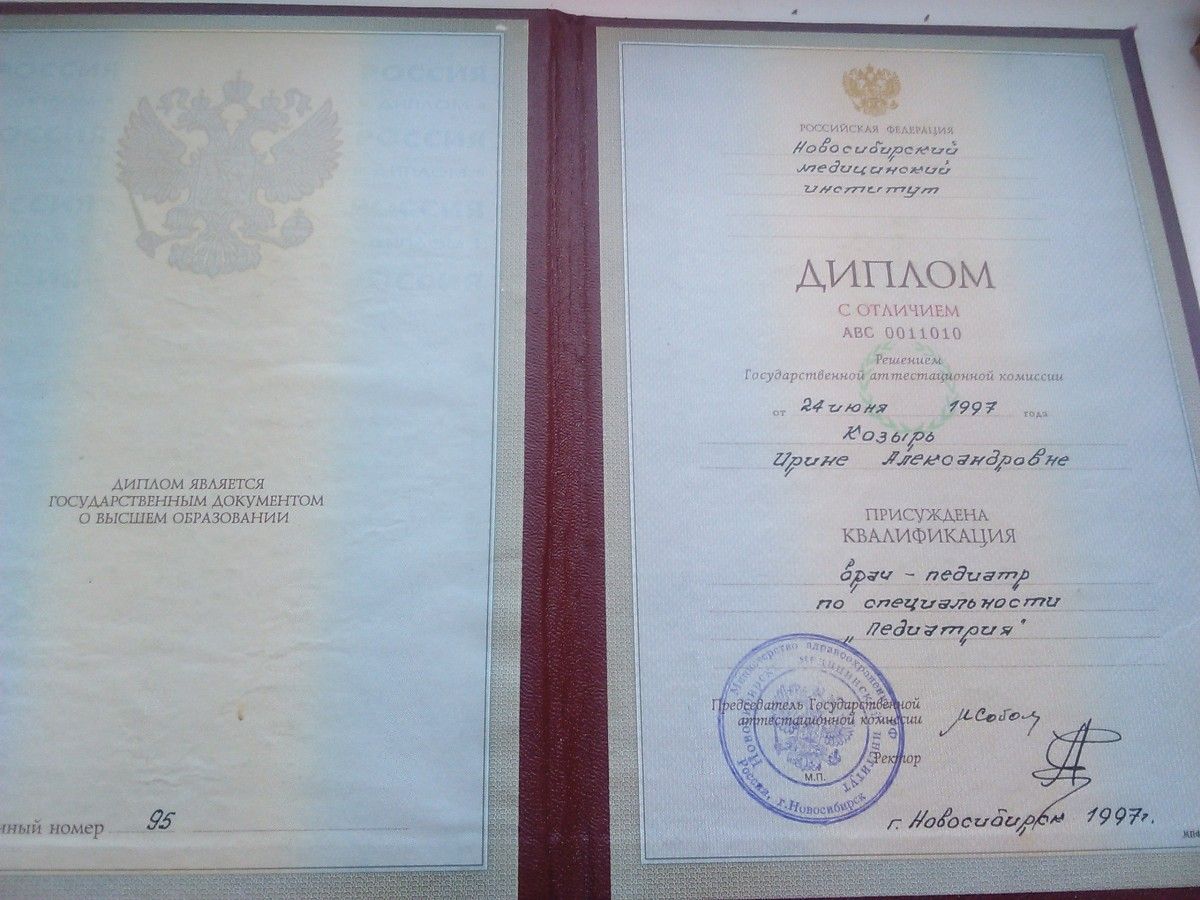 РОССИЯ
РОССИЯ
ДИПЛОМ ЯВЛЯЕТСЯ
ГОСУДАРСТВЕННЫМ ДОКУМЕНТОМ
О ВЫСШЕМ ОБРАЗОВАНИИ
номер 95
РОССИЙСКАЯ ФЕДЕРАЦИЯ
Новосибирский
медицинский
институт
ДИПЛОМ
С ОТЛИЧИЕМ
АВС 0011010
Решением
Государственной аттестационной комиссии
от 24 июня 1997 года
Козырь
Ирине Александровне
ПРИСУЖДЕНА
КВАЛИФИКАЦИЯ
врач - педиатр
по специальности
„Педиатрия"
Председатель Государственной
аттестационной комиссии
Ректор
М.П.
Министерство здравоохранения РФ
Новосибирский медицинский институт
Россия, г.Новосибирск
г. Новосибирск 1997г.